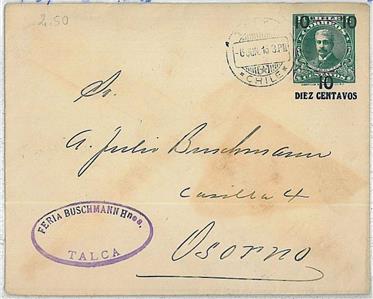 2.50
10 CHILE 10
10
DIEZ CENTAVOS
-6 JUN. 16 3 PM
* CHILE *
Sr.
A. Julio Buschmann
Casilla 4
Osorno
FERIA BUSCHMANN Hnos.
TALCA